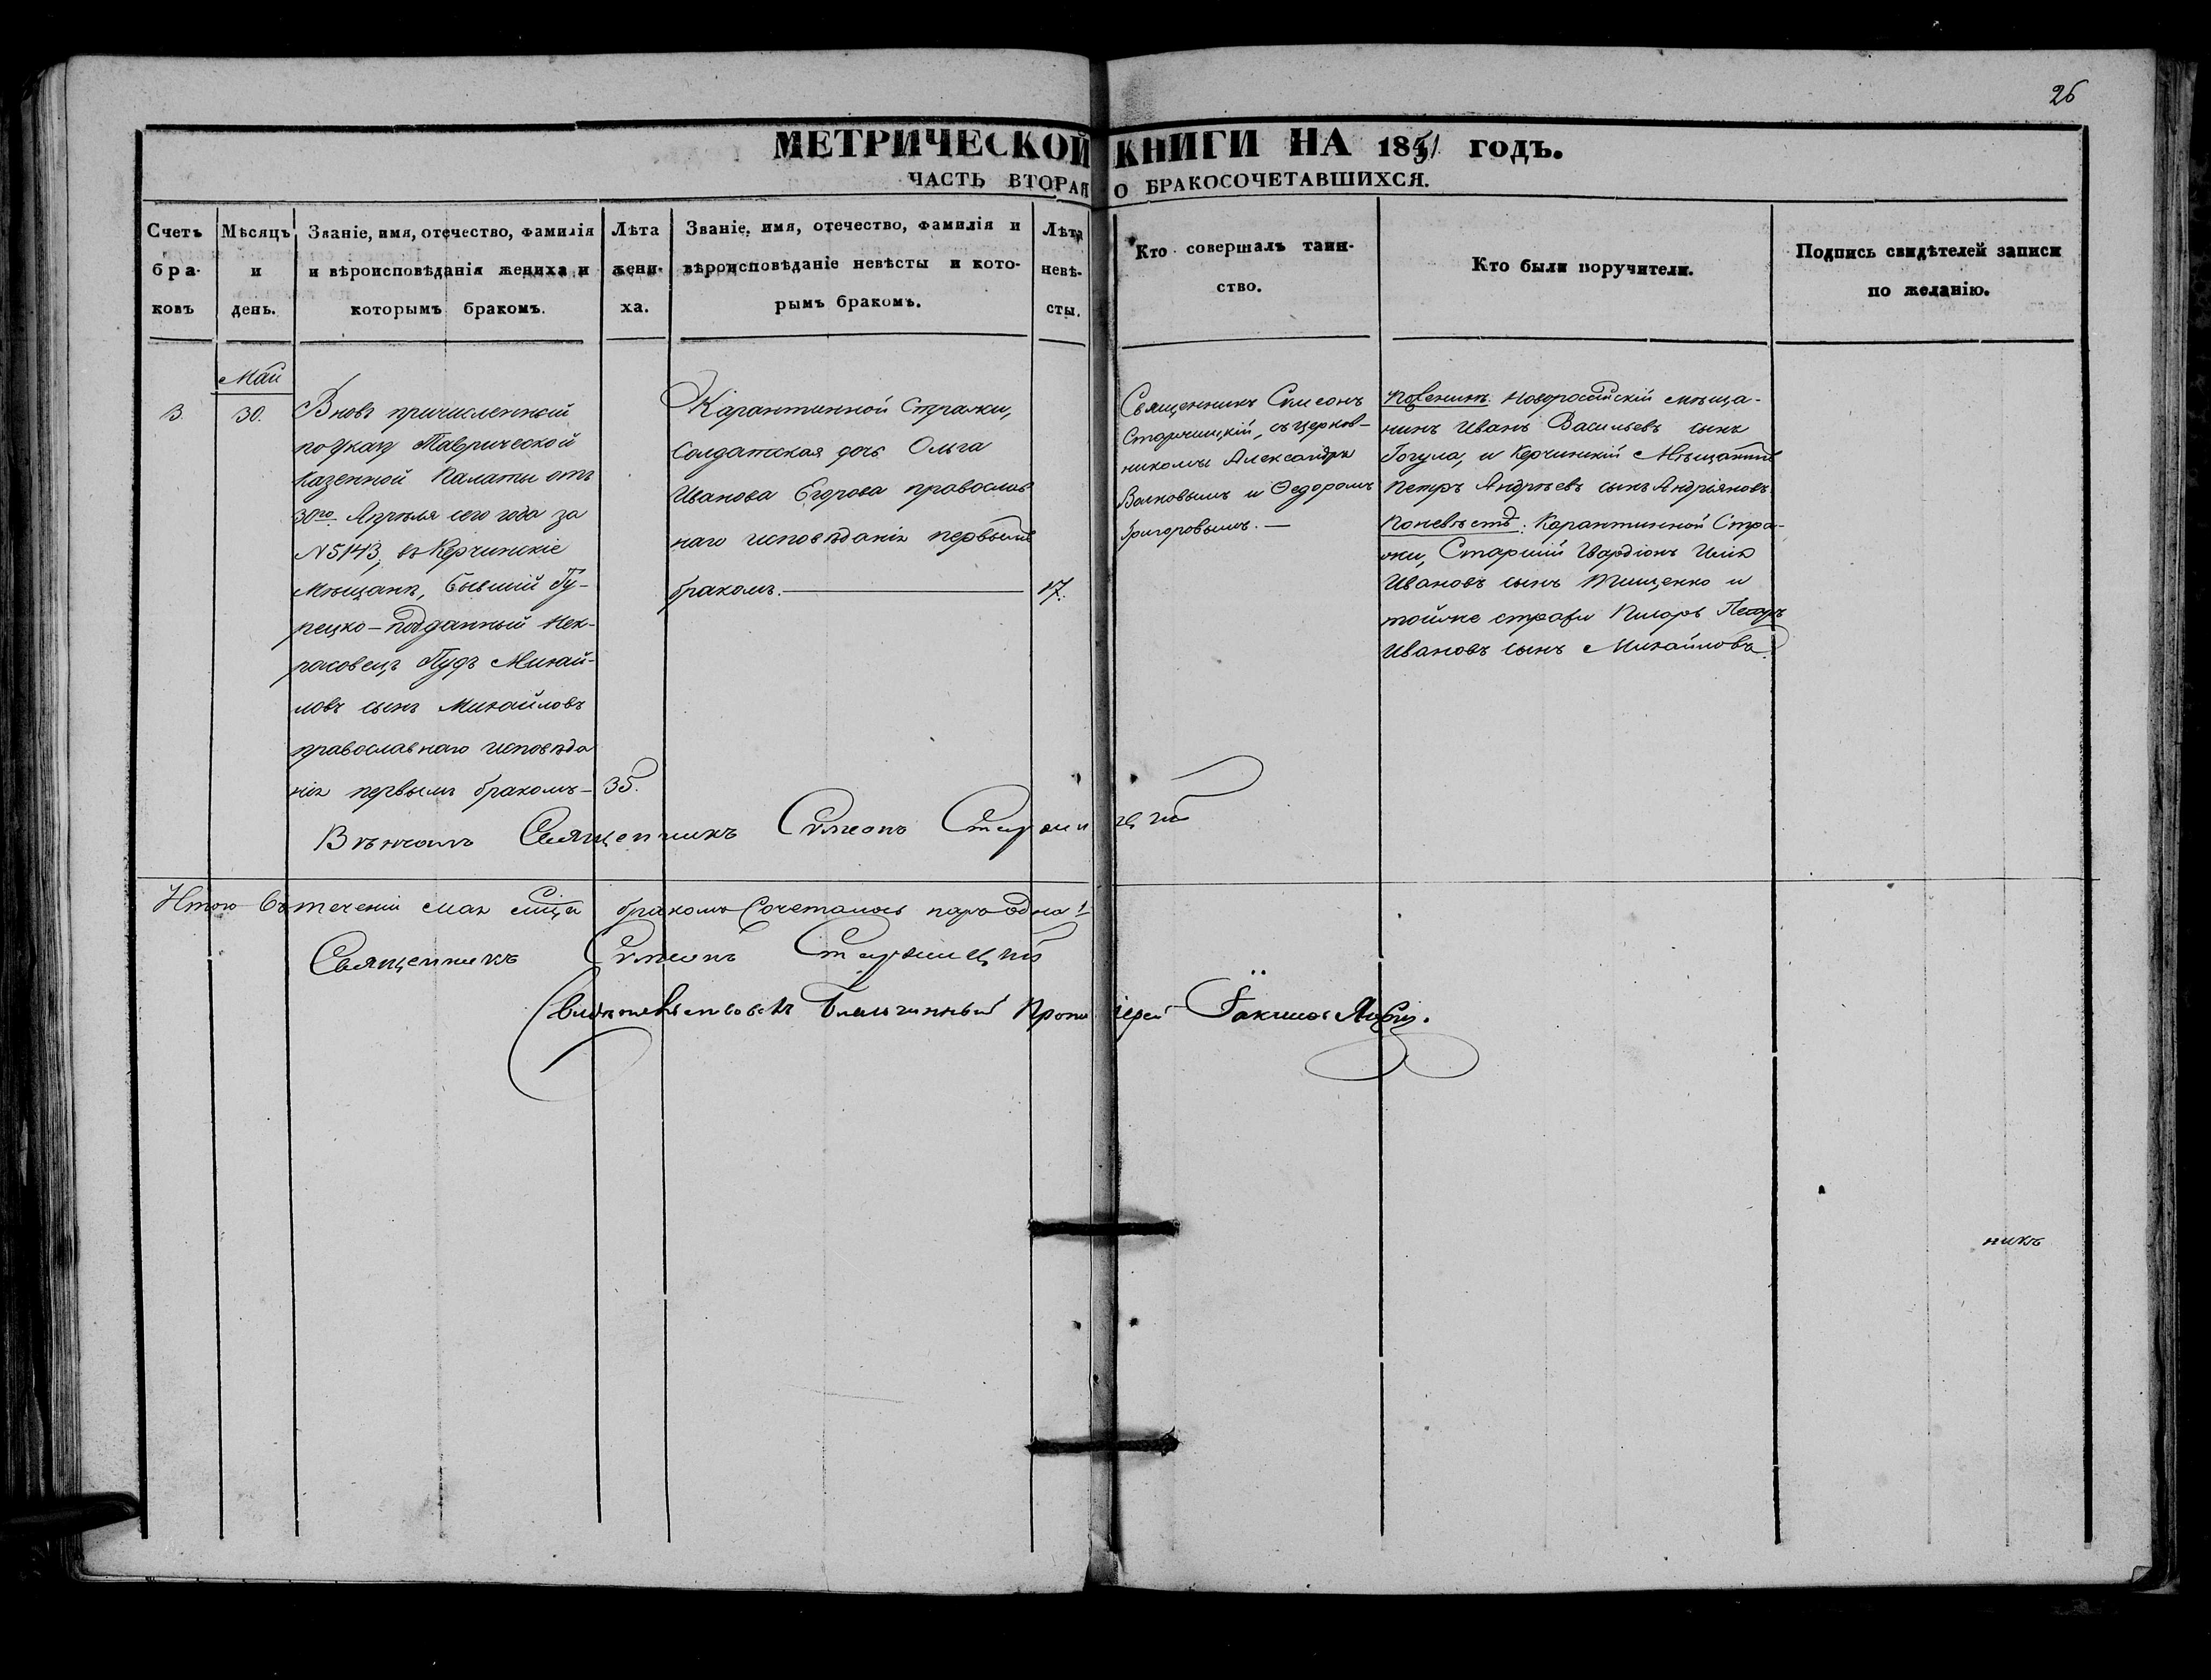 26
МЕТРИЧЕСКОЙ КНИГИ НА 1851 ГОДЪ.
ЧАСТЬ ВТОРАЯ О БРАКОСОЧЕТАВШИХСЯ.
Счетъ бра-ковъ
Мѣсяцъ и день.
Званіе, имя, отечество, фамилія
и вѣроисповѣданія жениха и
которымъ бракомъ.
Лѣта жени-ха.
Званіе, имя, отечество, фамилія и
вѣроисповѣданіе невѣсты и кото-
рымъ бракомъ.
Лѣта невѣ-сты.
Кто совершалъ таин-
ство.
Кто были поручители.
Подпись свидѣтелей записи
по желанію.
Май
3
30.
Вновь причисленной
по указу Таврической
Казенной Палаты отъ
30го Апрѣля сего года за
N 5143, въ Керчинскіе
Мѣщане, бывшій Ту-
рецко-подданный Нек-
расовецъ Пудъ Михай-
ловъ сынъ Михайловъ
православнаго исповѣда
нія первымъ бракомъ —
35.
Карантинной Стражи,
Солдатская дочь Ольга
Иванова Егорова православ
наго исповѣданія первымъ
бракомъ. —
17.
Священникъ Симеонъ
Старчицкій, съ церков-
никомъ Александръ
Волковымъ и Ѳедоромъ
Григоровымъ. —
Новороссійскій мѣща-
нинъ Иванъ Васильевъ сынъ
Гогула, и Керчинскій Мѣщанинъ
Петръ Андрѣевъ сынъ Андріяновъ.
По невѣстѣ: Карантинной Стра-
жи, Старшій Гвардіонъ Илія
Ивановъ сынъ Тищенко и
тойже стражи Писарь Петръ
Ивановъ сынъ Михайловъ.
Вѣнчалъ Священникъ Симеонъ
Итого въ теченіи мая мѣсца бракомъ сочеталось пара одна 1
Священникъ Симеонъ
Свидѣтельствовалъ Благочинный Протоіерей
никъ